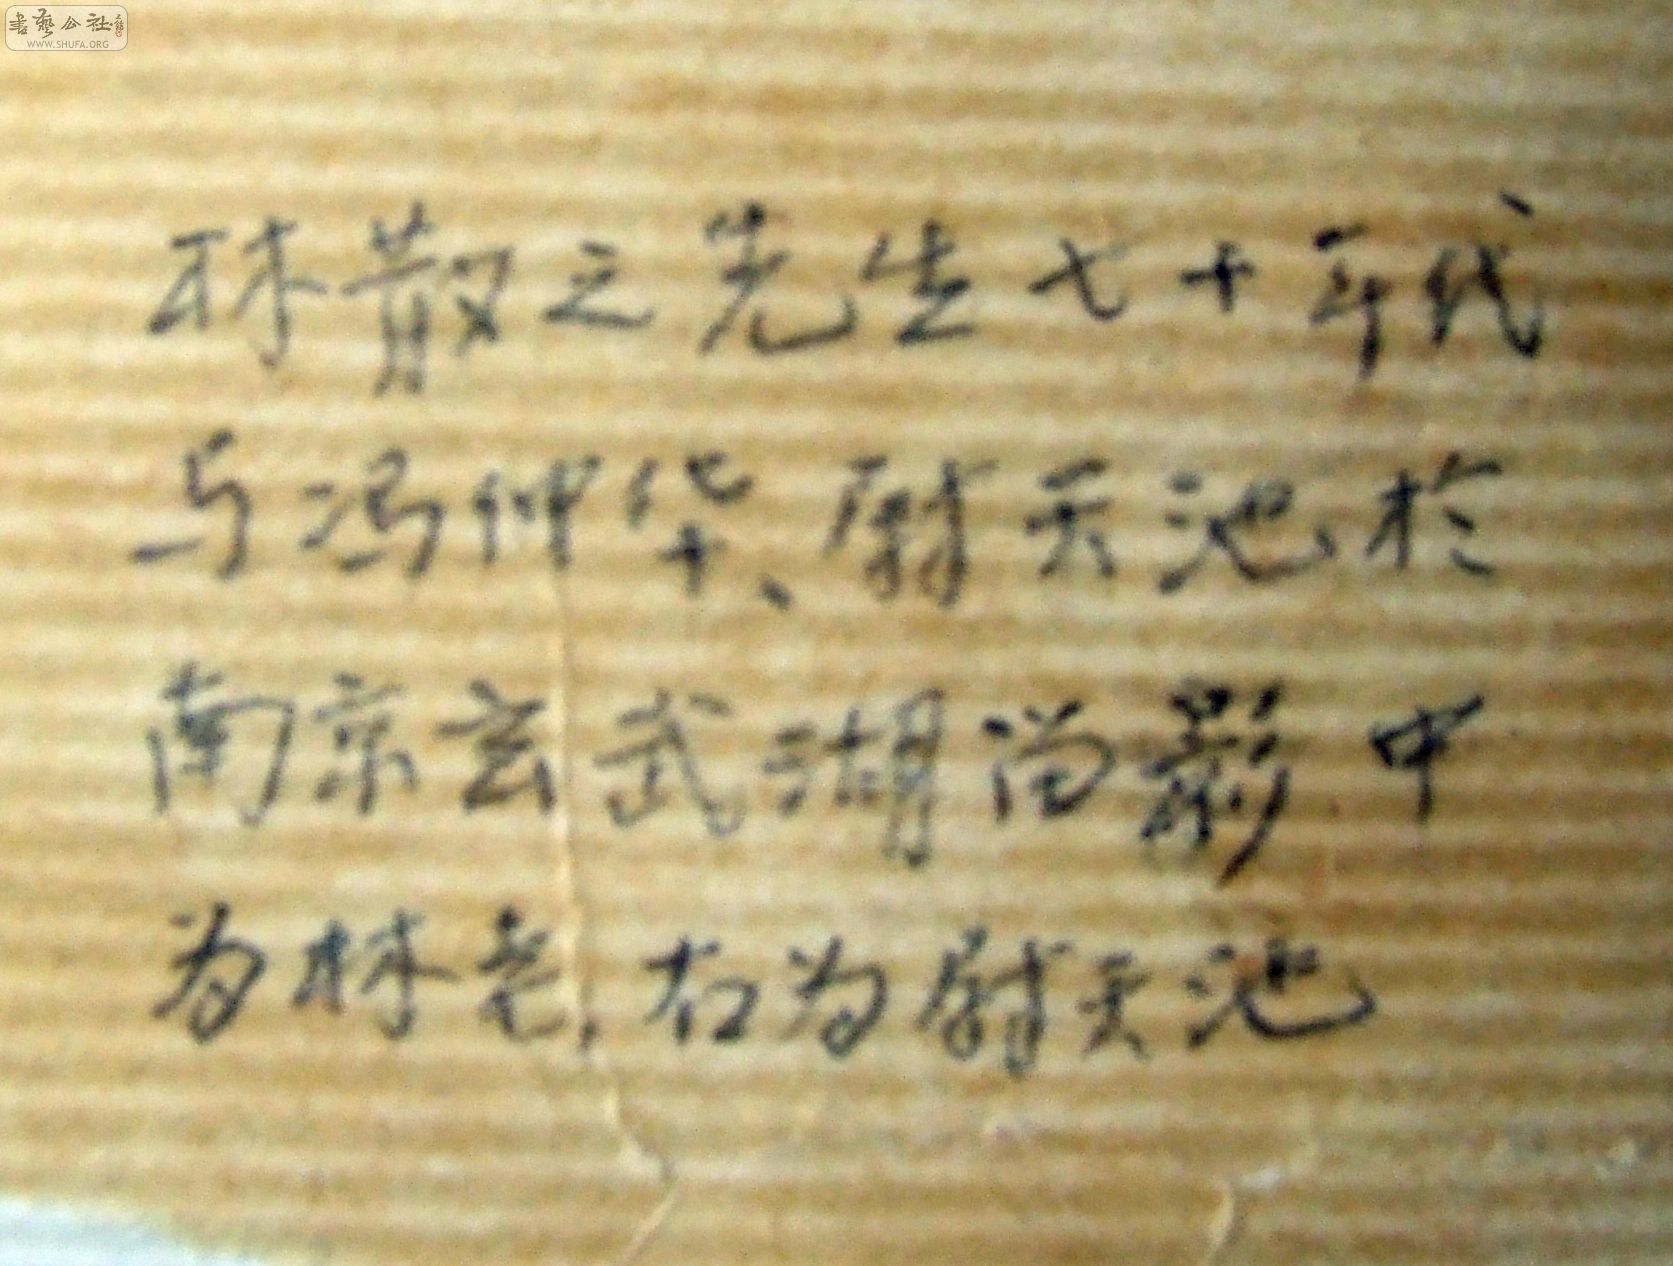 書藝公社
WWW.SHUFA.ORG
林散之先生七十年代
与冯仲华、尉天池於
南京玄武湖留影中
为林老,右为尉天池